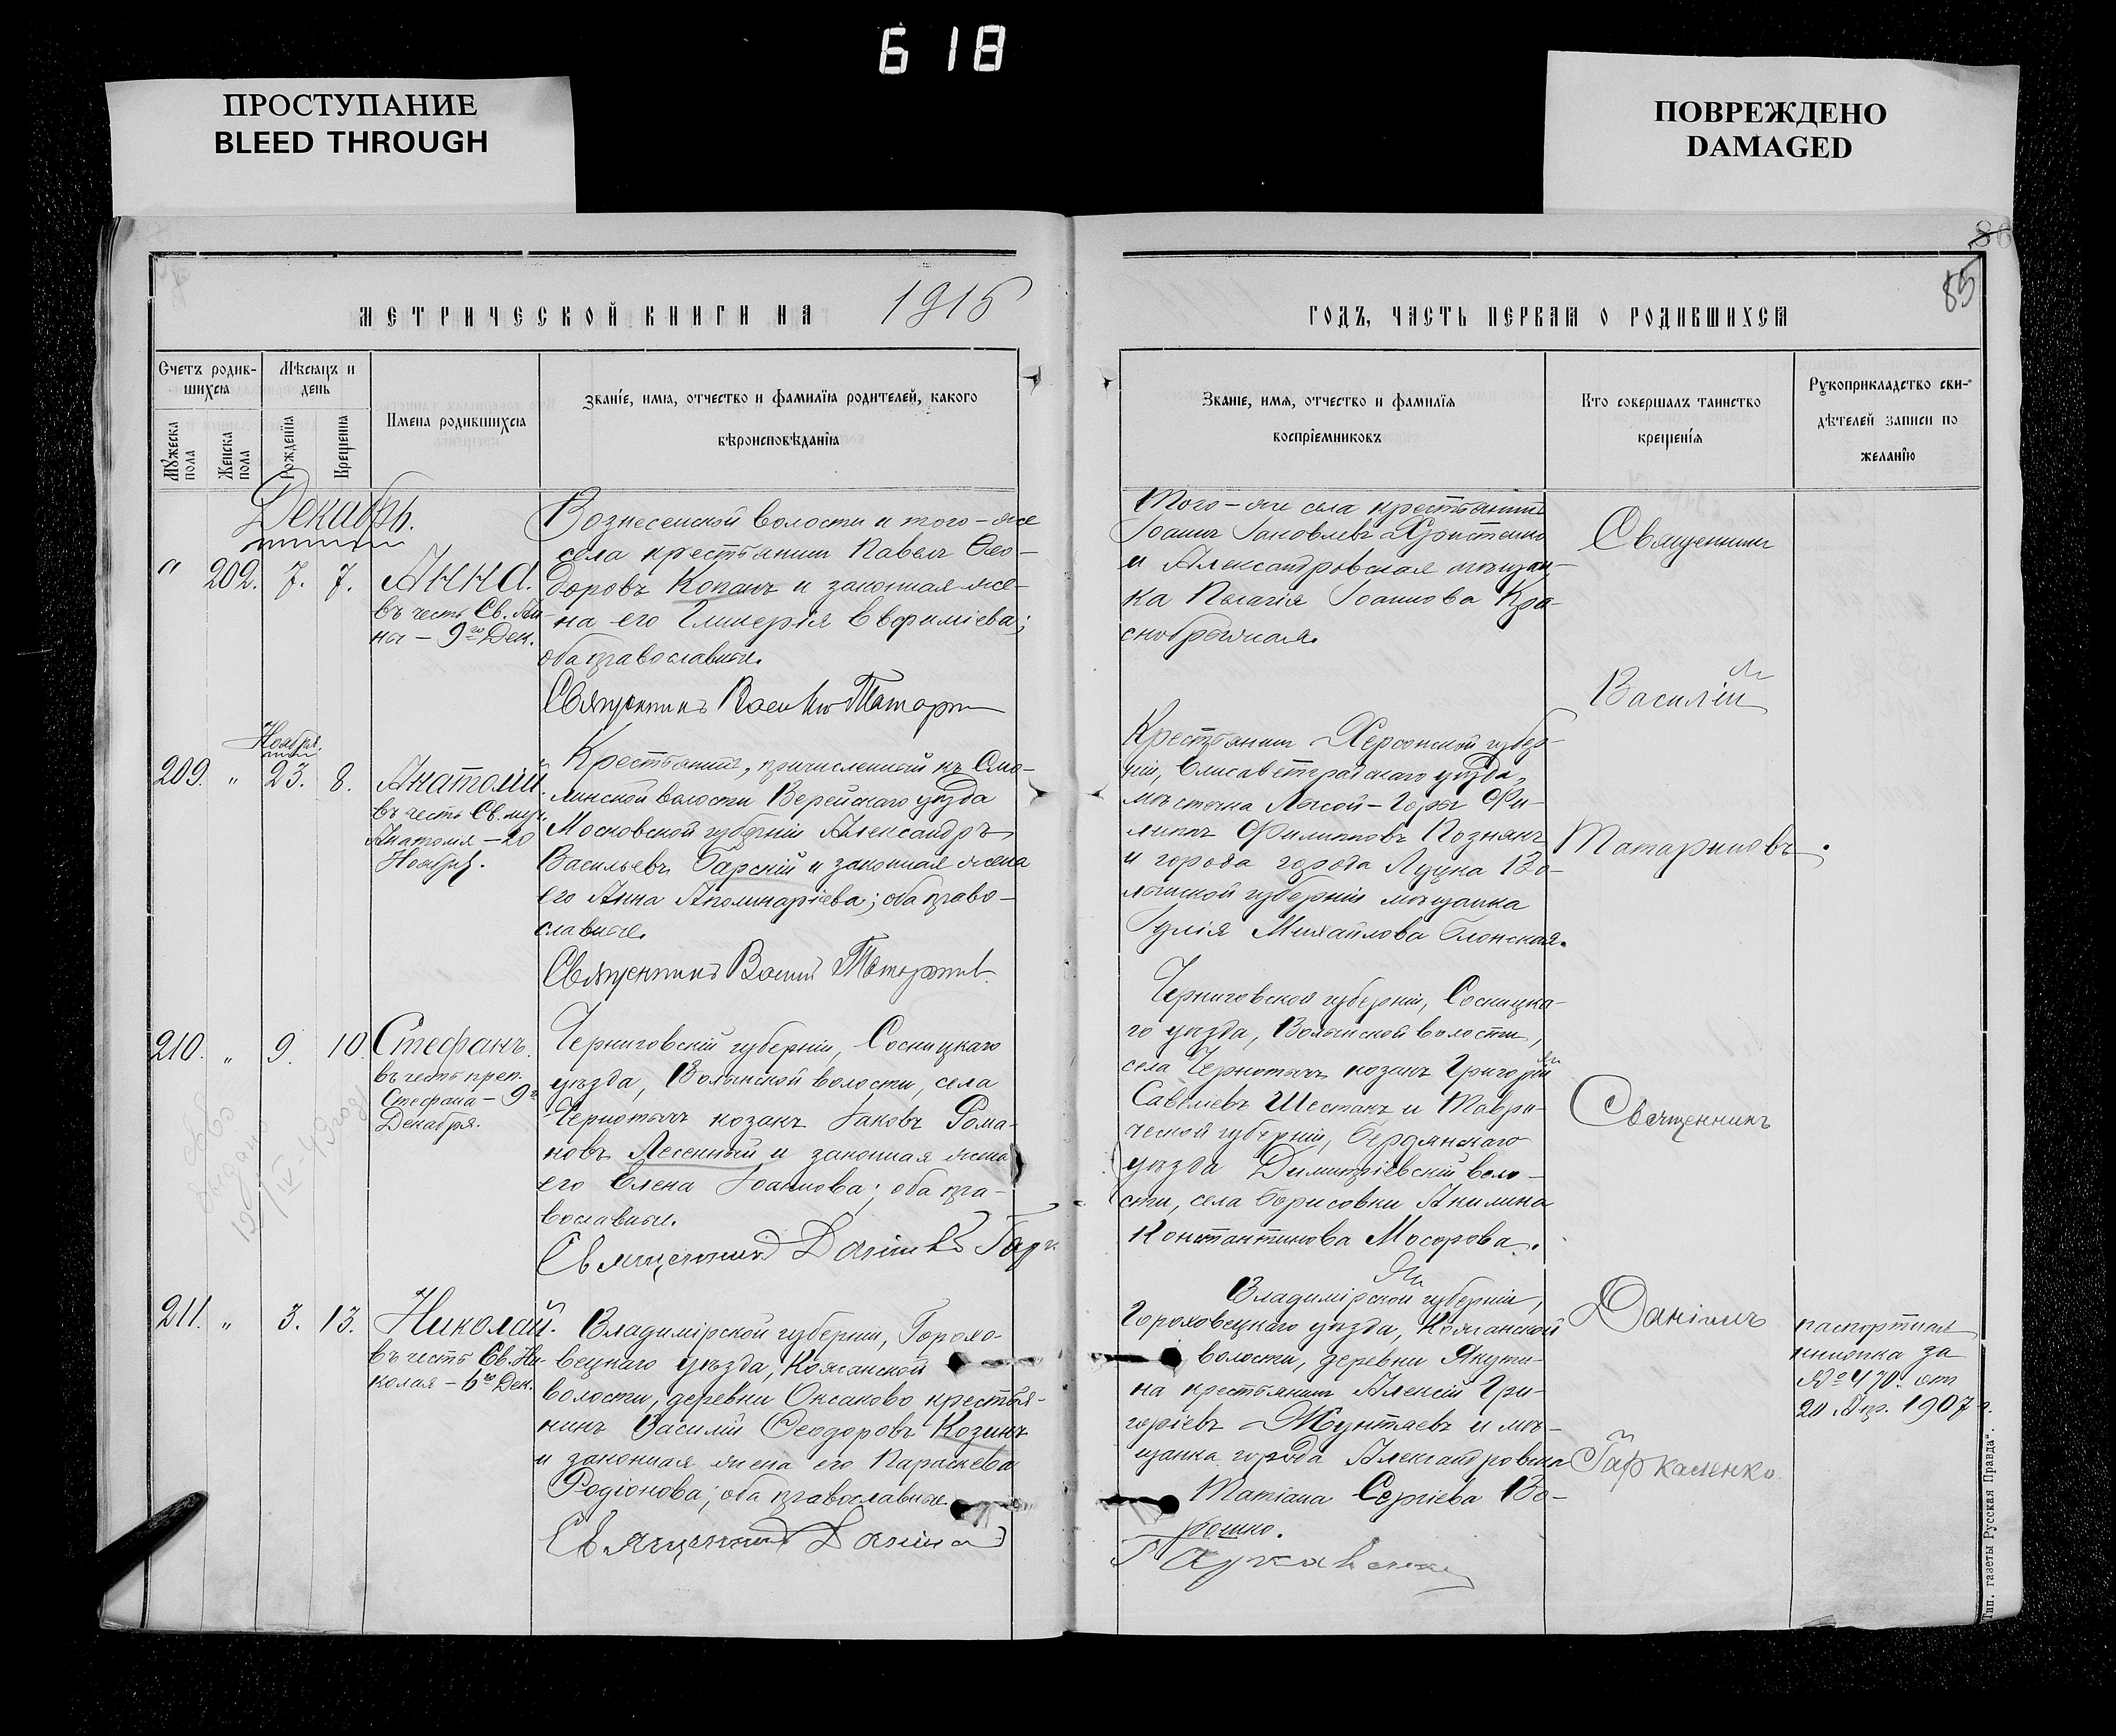 618
ПРОСТУПАНИЕ
BLEED THROUGH
ПОВРЕЖДЕНО
DAMAGED
85
МЕТРИЧЕСКОЙ КНИГИ НА 1915
ГОДЪ, ЧАСТЬ ПЕРВАЯ О РОДИВШИХСЯ
Счетъ родив-
шихся
Мѣсяцъ и
день
Мужеска пола
Женска пола
Рожденія
Крещенія
Имена родившихся
Званіе, имя, отчество и фамилія родителей, какого
вѣроисповѣданія
Званіе, имя, отчество и фамилія
воспріемниковъ
Кто совершалъ таинство
крещенія
Рукоприкладство сви-
дѣтелей записи по
желанію
Декабрь.
" 202. 7. 7. Анна.
въ честь Св. Ан-
ны – 9го Дек.
Вознесенской волости и того-же
села крестьянинъ Павелъ Ѳео-
доровъ Копанъ и законная же-
на его Гликерія Евфиміева;
оба православные.
Священникъ Василій Татарин
Того-же села крестьянинъ
Іоаннъ Іаковлевъ Христенко
и Александровская мѣщан-
ка Пелагія Іоаннова Кра-
снобрыжая.
Священникъ
Василій
Татариновъ.
Ноября
209. " 23. 8. Анатолій
въ честь Св. муч.
Анатолія – 20
Ноября.
Крестьянинъ, причисленный къ Смо-
линской волости Верейскаго уѣзда
Московской губерніи Александръ
Васильевъ Барскій и законная жена
его Анна Аполинаріева; оба право-
славные.
Священникъ Василій Татаринов
Крестьянинъ Херсонской губер-
ніи, Елисаветградскаго уѣзда,
мѣстечка Лысой-Горы Фи-
липпъ Филипповъ Познякъ
и города города Луцка Во-
лынской губерніи мѣщанка
Іулія Михайлова Блонская.
210. " 9. 10. Стефанъ.
въ честь преп.
Стефана – 9го
Декабря.
Черниговскій губерніи, Сосницкаго
уѣзда, Волынской волости, села
Чернотычъ козакъ Іаковъ Рома-
новъ Лесенный и законная жена
его Елена Іоаннова; оба пра-
вославные.
Священникъ Даніилъ Гарк
Черниговской губерніи, Сосницка-
го уѣзда, Волынской волости,
села Чернотычъ козакъ Григорій
Савеліевъ Шестакъ и Таври-
ческой губерніи, Бердянскаго
уѣзда Димитріевскій воло-
сти, села Борисовки Акилина
Константинова Мосорова.
Священникъ
Даніилъ
Гаркавенко.
211. " 3. 13. Николай.
въ честь Св. Ни-
колая – 6го Дек.
Владимірской губерніи, Горохо-
вецкаго уѣзда, Кожанской
волости, деревни Оксаково крестья-
нинъ Василій Ѳеодоровъ Козинъ
и законная жена его Параскева
Родіонова; оба православные
Священникъ Даніилъ
Владимірской губерніи,
Гороховецкаго уѣзда, Кожанской
волости, деревни Якути-
на крестьянинъ Алексій Гри-
горіевъ Жунтяевъ и мѣ-
щанка города Александровска
Татіана Сергіева Во-
рошко.
Гаркавенко
паспортная
книжка за
№ 470. от
20 Апр. 1907 г.
Тип. газеты „Русская Правда“.